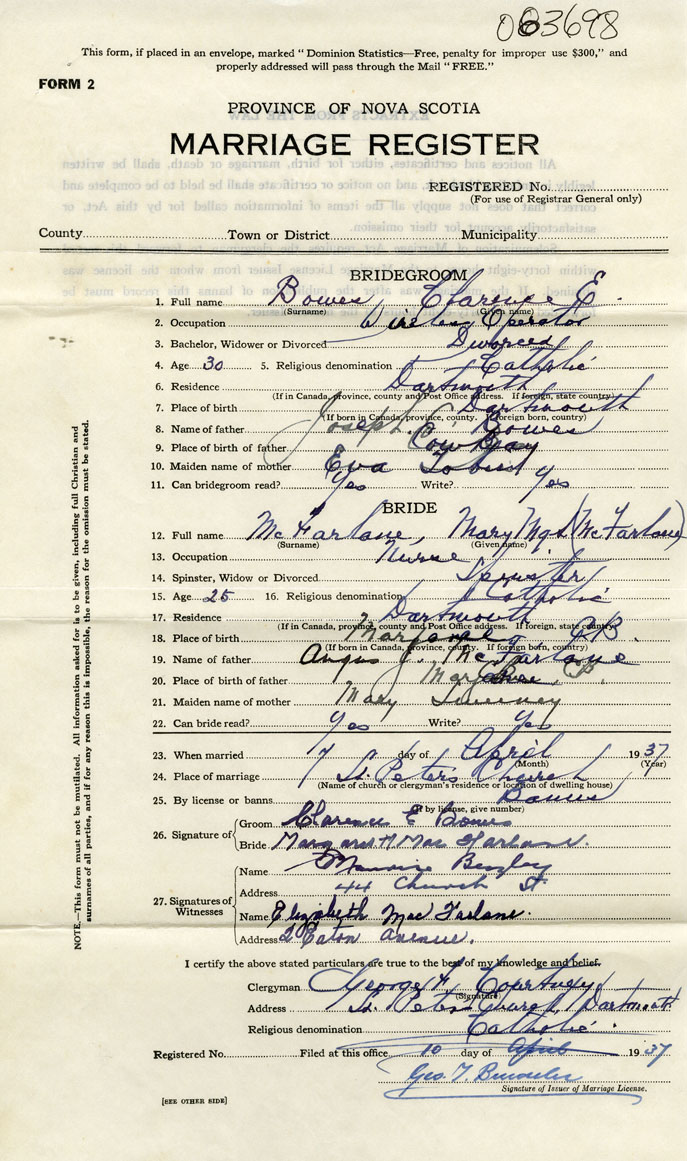 003698
This form, if placed in an envelope, marked "Dominion Statistics—Free, penalty for improper use $300," and
properly addressed will pass through the Mail "FREE."
FORM 2
PROVINCE OF NOVA SCOTIA
MARRIAGE REGISTER
REGISTERED No.
(For use of Registrar General only)
County Town or District Municipality
BRIDEGROOM
1. Full name Bowes, Clarence E.
(Surname) (Given name)
2. Occupation Wireless Operator
3. Bachelor, Widower or Divorced Divorced
4. Age 30 5. Religious denomination Catholic
6. Residence Dartmouth
(If in Canada, province, county and Post Office address. If foreign, state country)
7. Place of birth Dartmouth
(If born in Canada, province, county. If foreign born, country)
8. Name of father Joseph C. Bowes
9. Place of birth of father Cow Bay
10. Maiden name of mother Eva
11. Can bridegroom read? Yes Write? Yes
BRIDE
12. Full name McFarlane, Mary Mgt (McFarlane)
(Surname) (Given name)
13. Occupation Nurse
14. Spinster, Widow or Divorced Spinster
15. Age 25 16. Religious denomination Catholic
17. Residence Dartmouth
(If in Canada, province, county and Post Office address. If foreign, state country)
18. Place of birth Margaree CB
(If born in Canada, province, county. If foreign born, country)
19. Name of father Angus J. McFarlane
20. Place of birth of father Margaree CB
21. Maiden name of mother Mary Sweeney
22. Can bride read? Yes Write? Yes
23. When married 7 day of April 1937
(Month) (Year)
24. Place of marriage St. Peters Church
(Name of church or clergyman's residence or location of dwelling house)
25. By license or banns Banns
(If by license, give number)
26. Signature of Groom Clarence E Bowes
Bride Margaret M MacFarlane.
27. Signatures of Witnesses
Name Maurice Bezley
Address 44 Church St
Name Elizabeth MacFarlane.
Address 2 Eaton avenue.
I certify the above stated particulars are true to the best of my knowledge and belief.
Clergyman George F. Courtney
(Signature)
Address St. Peters Church, Dartmouth
Religious denomination Catholic
Registered No. Filed at this office 10 day of April 1937
Geo. T.
Signature of Issuer of Marriage License.
[SEE OTHER SIDE]
NOTE.—This form must not be mutilated. All information asked for is to be given, including full Christian and
surnames of all parties, and if for any reason this is impossible, the reason for the omission must be stated.